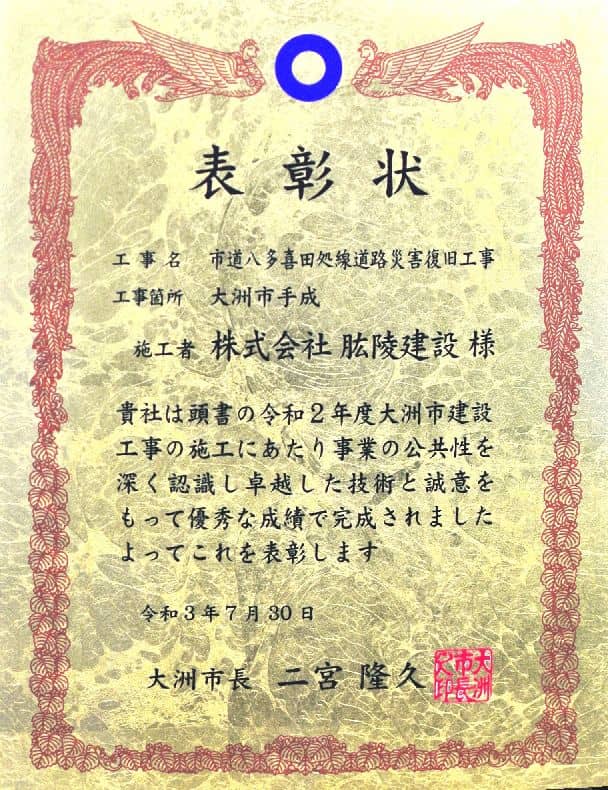 表彰状
工事名 市道八多喜田処線道路災害復旧工事
工事箇所 大洲市手成
施工者 株式会社 肱陵建設 様
貴社は頭書の令和2年度大洲市建設
工事の施工にあたり事業の公共性を
深く認識し卓越した技術と誠意を
もって優秀な成績で完成されました
よってこれを表彰します
令和3年7月30日
大洲市長 二宮隆久
大洲市長之印